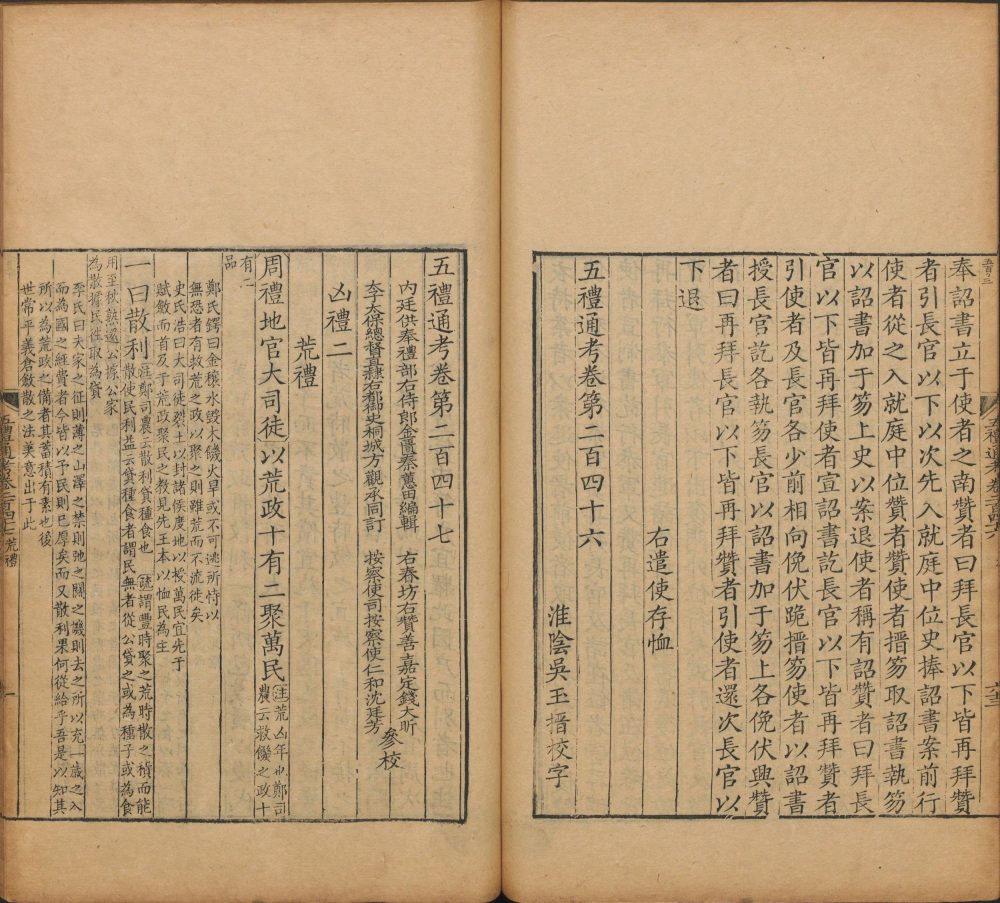 奉詔書立于使者之南贊者曰拜長官以下皆再拜贊
者引長官以下以次先入就庭中位史捧詔書案前行
使者從之入就庭中位贊者贊使者搢笏取詔書執笏
以詔書加于笏上史以案退使者稱有詔贊者曰拜長
官以下皆再拜使者宣詔書訖長官以下皆再拜贊者
引使者及長官各少前相向俛伏跪搢笏使者以詔書
授長官訖各執笏長官以詔書加于笏上各俛伏興贊
者曰再拜長官以下皆再拜贊者引使者還次長官以
下退
右遣使存恤
淮陰吳玉搢校字
五禮通考卷第二百四十六
五禮通考卷第二百四十七
內廷供奉禮部右侍郎金匱秦蕙田編輯
右春坊右贊善嘉定錢大昕
李太保總督直隸右都御史桐城方觀承同訂
按察使司按察使仁和沈廷芳
參校
凶禮二
荒禮
周禮地官大司徒以荒政十有二聚萬民
注荒凶年也鄭司
農云救饑之政十
有二
品
鄭氏鍔曰金穰水毀木饑火旱或不可逃所恃以
無恐者有救荒之政以聚之則雖荒而不流徙矣
史氏浩曰大司徒裂土以封諸侯度地以授萬民宜先于
賦斂而首及于荒政聚民之教見先王本以恤民為主
一曰散利
注鄭司農云散利貸種食也 疏謂豐時聚之荒時散之積而能
散使民利益云貸種食者謂民無者從公貸之或為種子或為食
用至秋熟還公據公家
為散據民往取為貸
李氏曰夫家之征則薄之山澤之禁則弛之關之譏則去之所以充一歲之入
而為國之經費者今皆以予民則已厚矣而又散利果何從給乎吾是以知其
所以為荒政之備者其蓄積有素也後
世常平義倉斂散之法美意出于此
五禮通考卷二百四七 荒禮
一